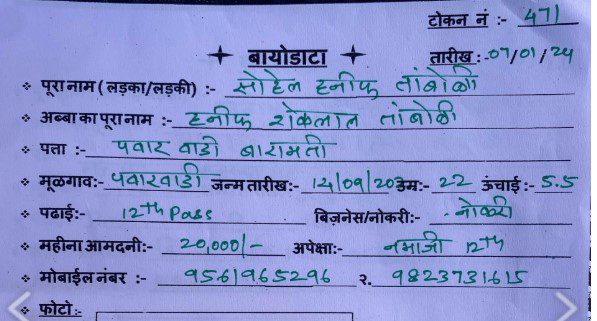 टोकन नं :- 471
बायोडाटा
तारीख :- 07/01/24
पूरा नाम ( लड़का/लड़की) :- सोहेल हनीफ तांबोळी
अब्बा का पूरा नाम :- हनीफ शोकलाल तांबोळी
पत्ता :- पवार वाडी बारामती
मूळगाव:- पवारवाडी जन्म तारीख:- 14/09/20 उम्र:- 22 ऊंचाई:- 5.5
पढाई:- 12th Pass बिज़नेस/नोकरी:- नोकरी
महीना आमदनी:- 20,000/- अपेक्षा:- नमाजी 12th
मोबाईल नंबर :- 9561965296 २. 9823731615
फोटो:-